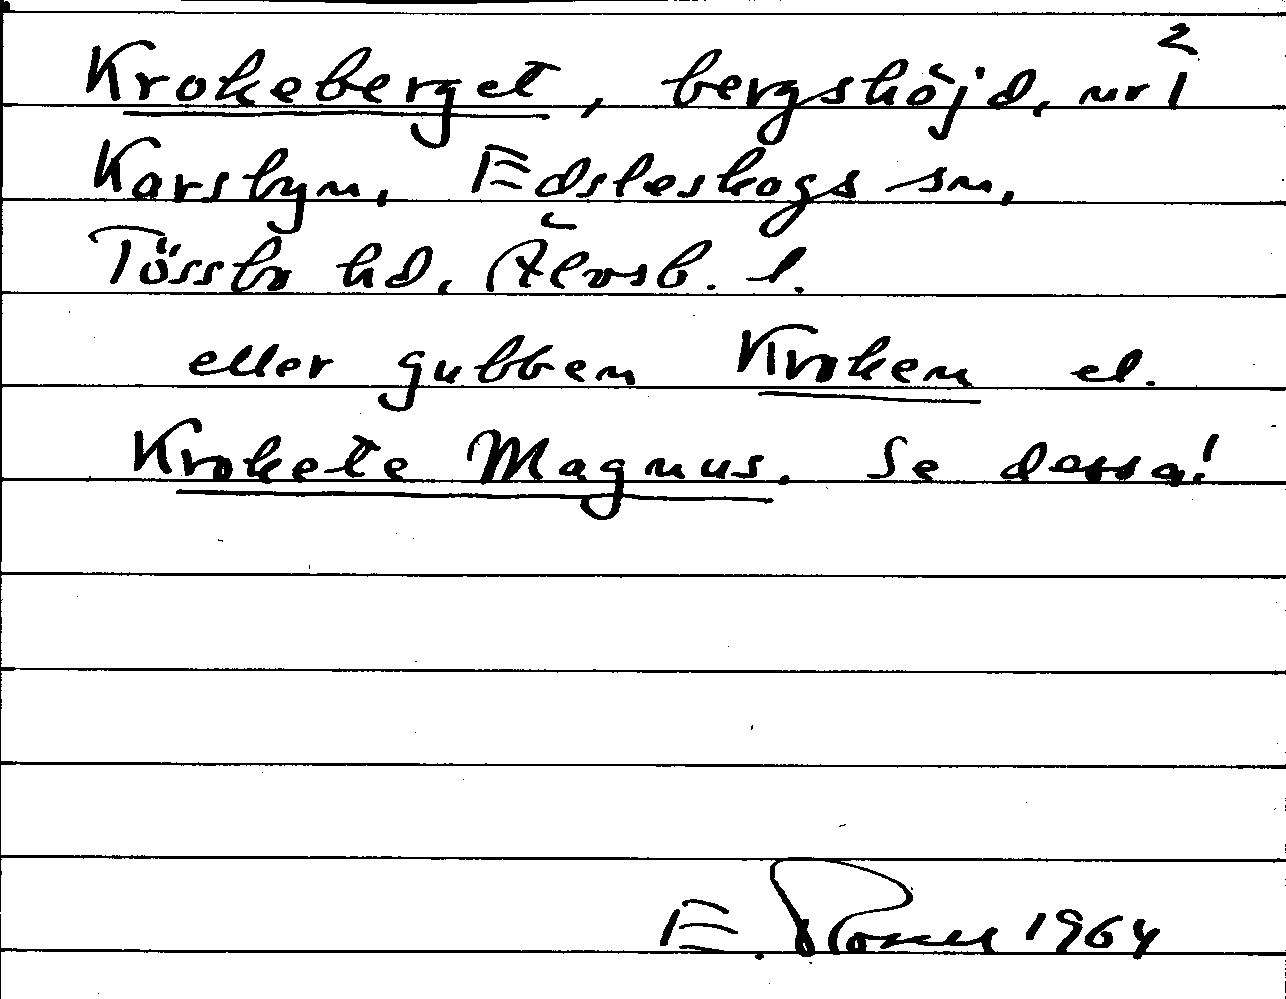 Krokeberget, bergshöjd, nr 1²
Karsbyn, Edsleskogs sn,
Tössbo hd, Älvsb. l.
eller gubben Kroken el.
Krokete Magnus. Se dessa!
E. 1964